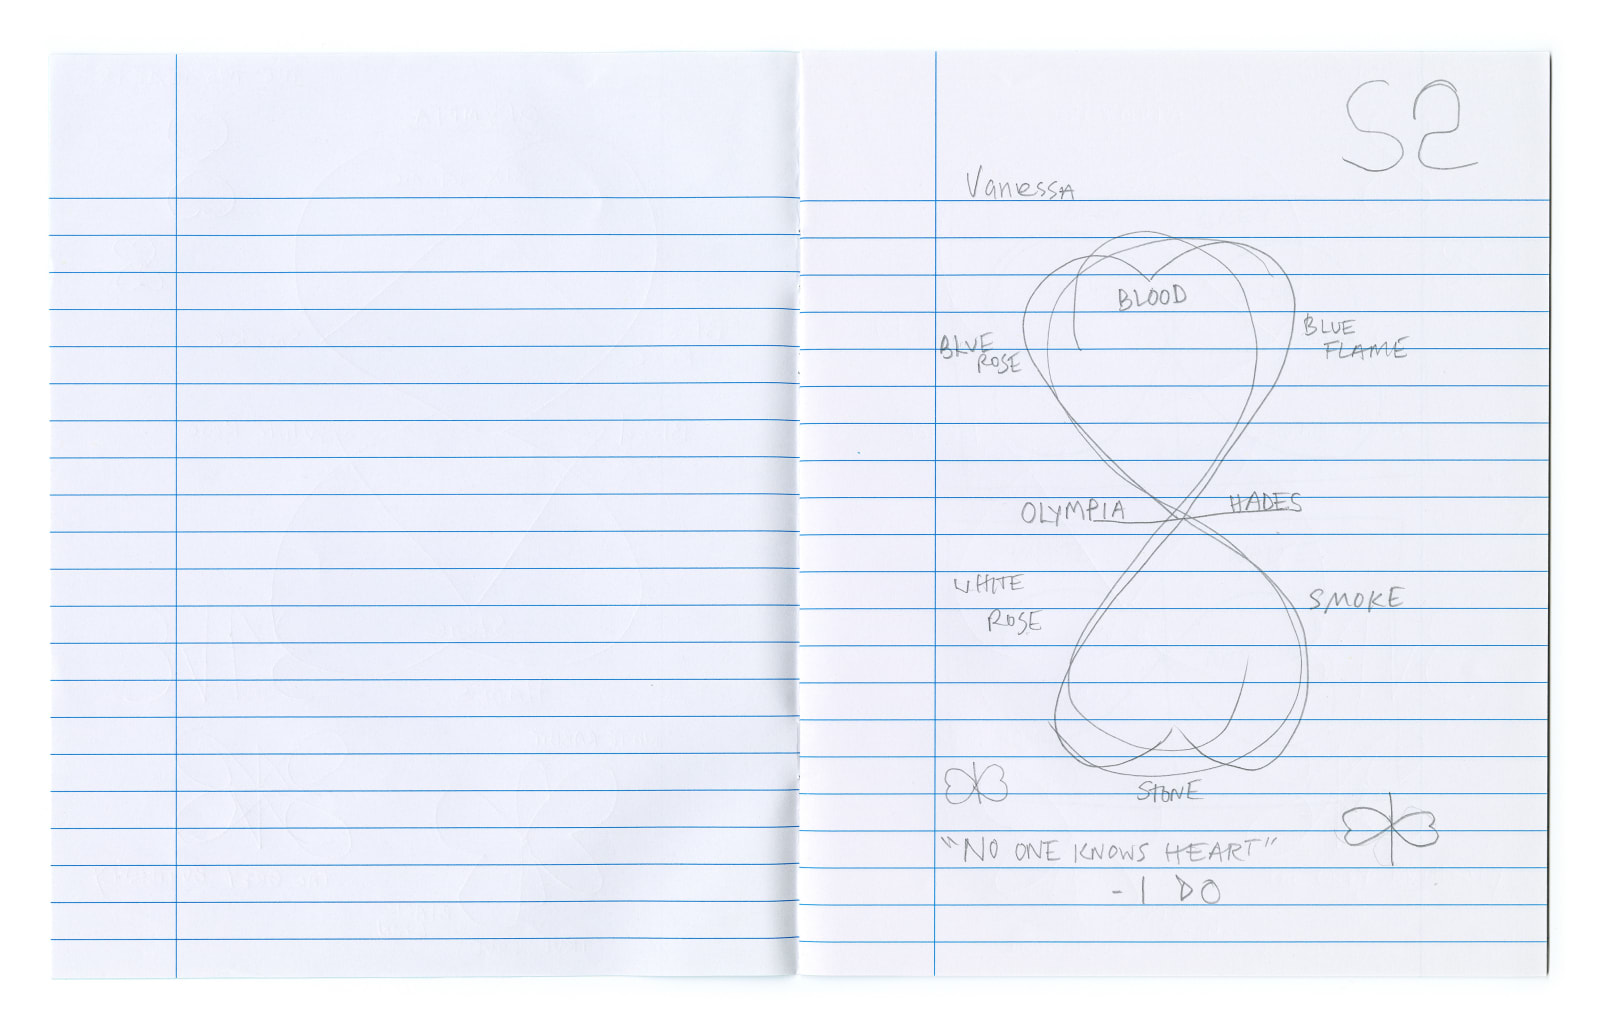 S2
Vanessa
BLOOD
BLUE
ROSE
BLUE
FLAME
OLYMPIA
HADES
WHITE
ROSE
SMOKE
STONE
"NO ONE KNOWS HEART"
- I DO